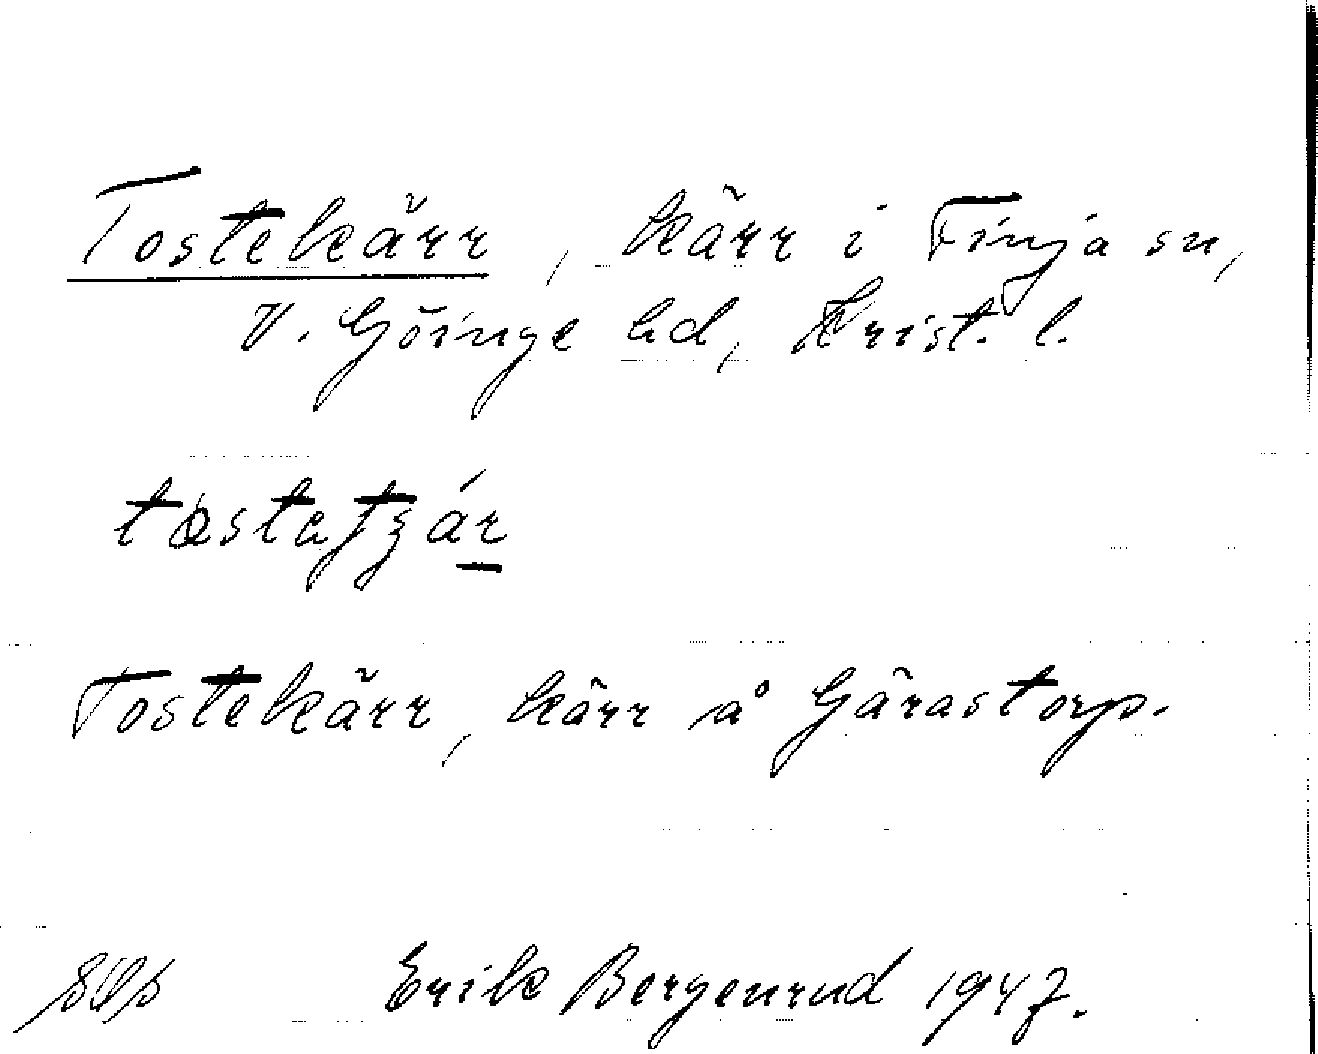 Tostekärr, kärr i Finja sn,
V. Göinge hd, Krist. l.
Tostekärr, kärr å Gärastorp.
Erik Bergenrud 1947.